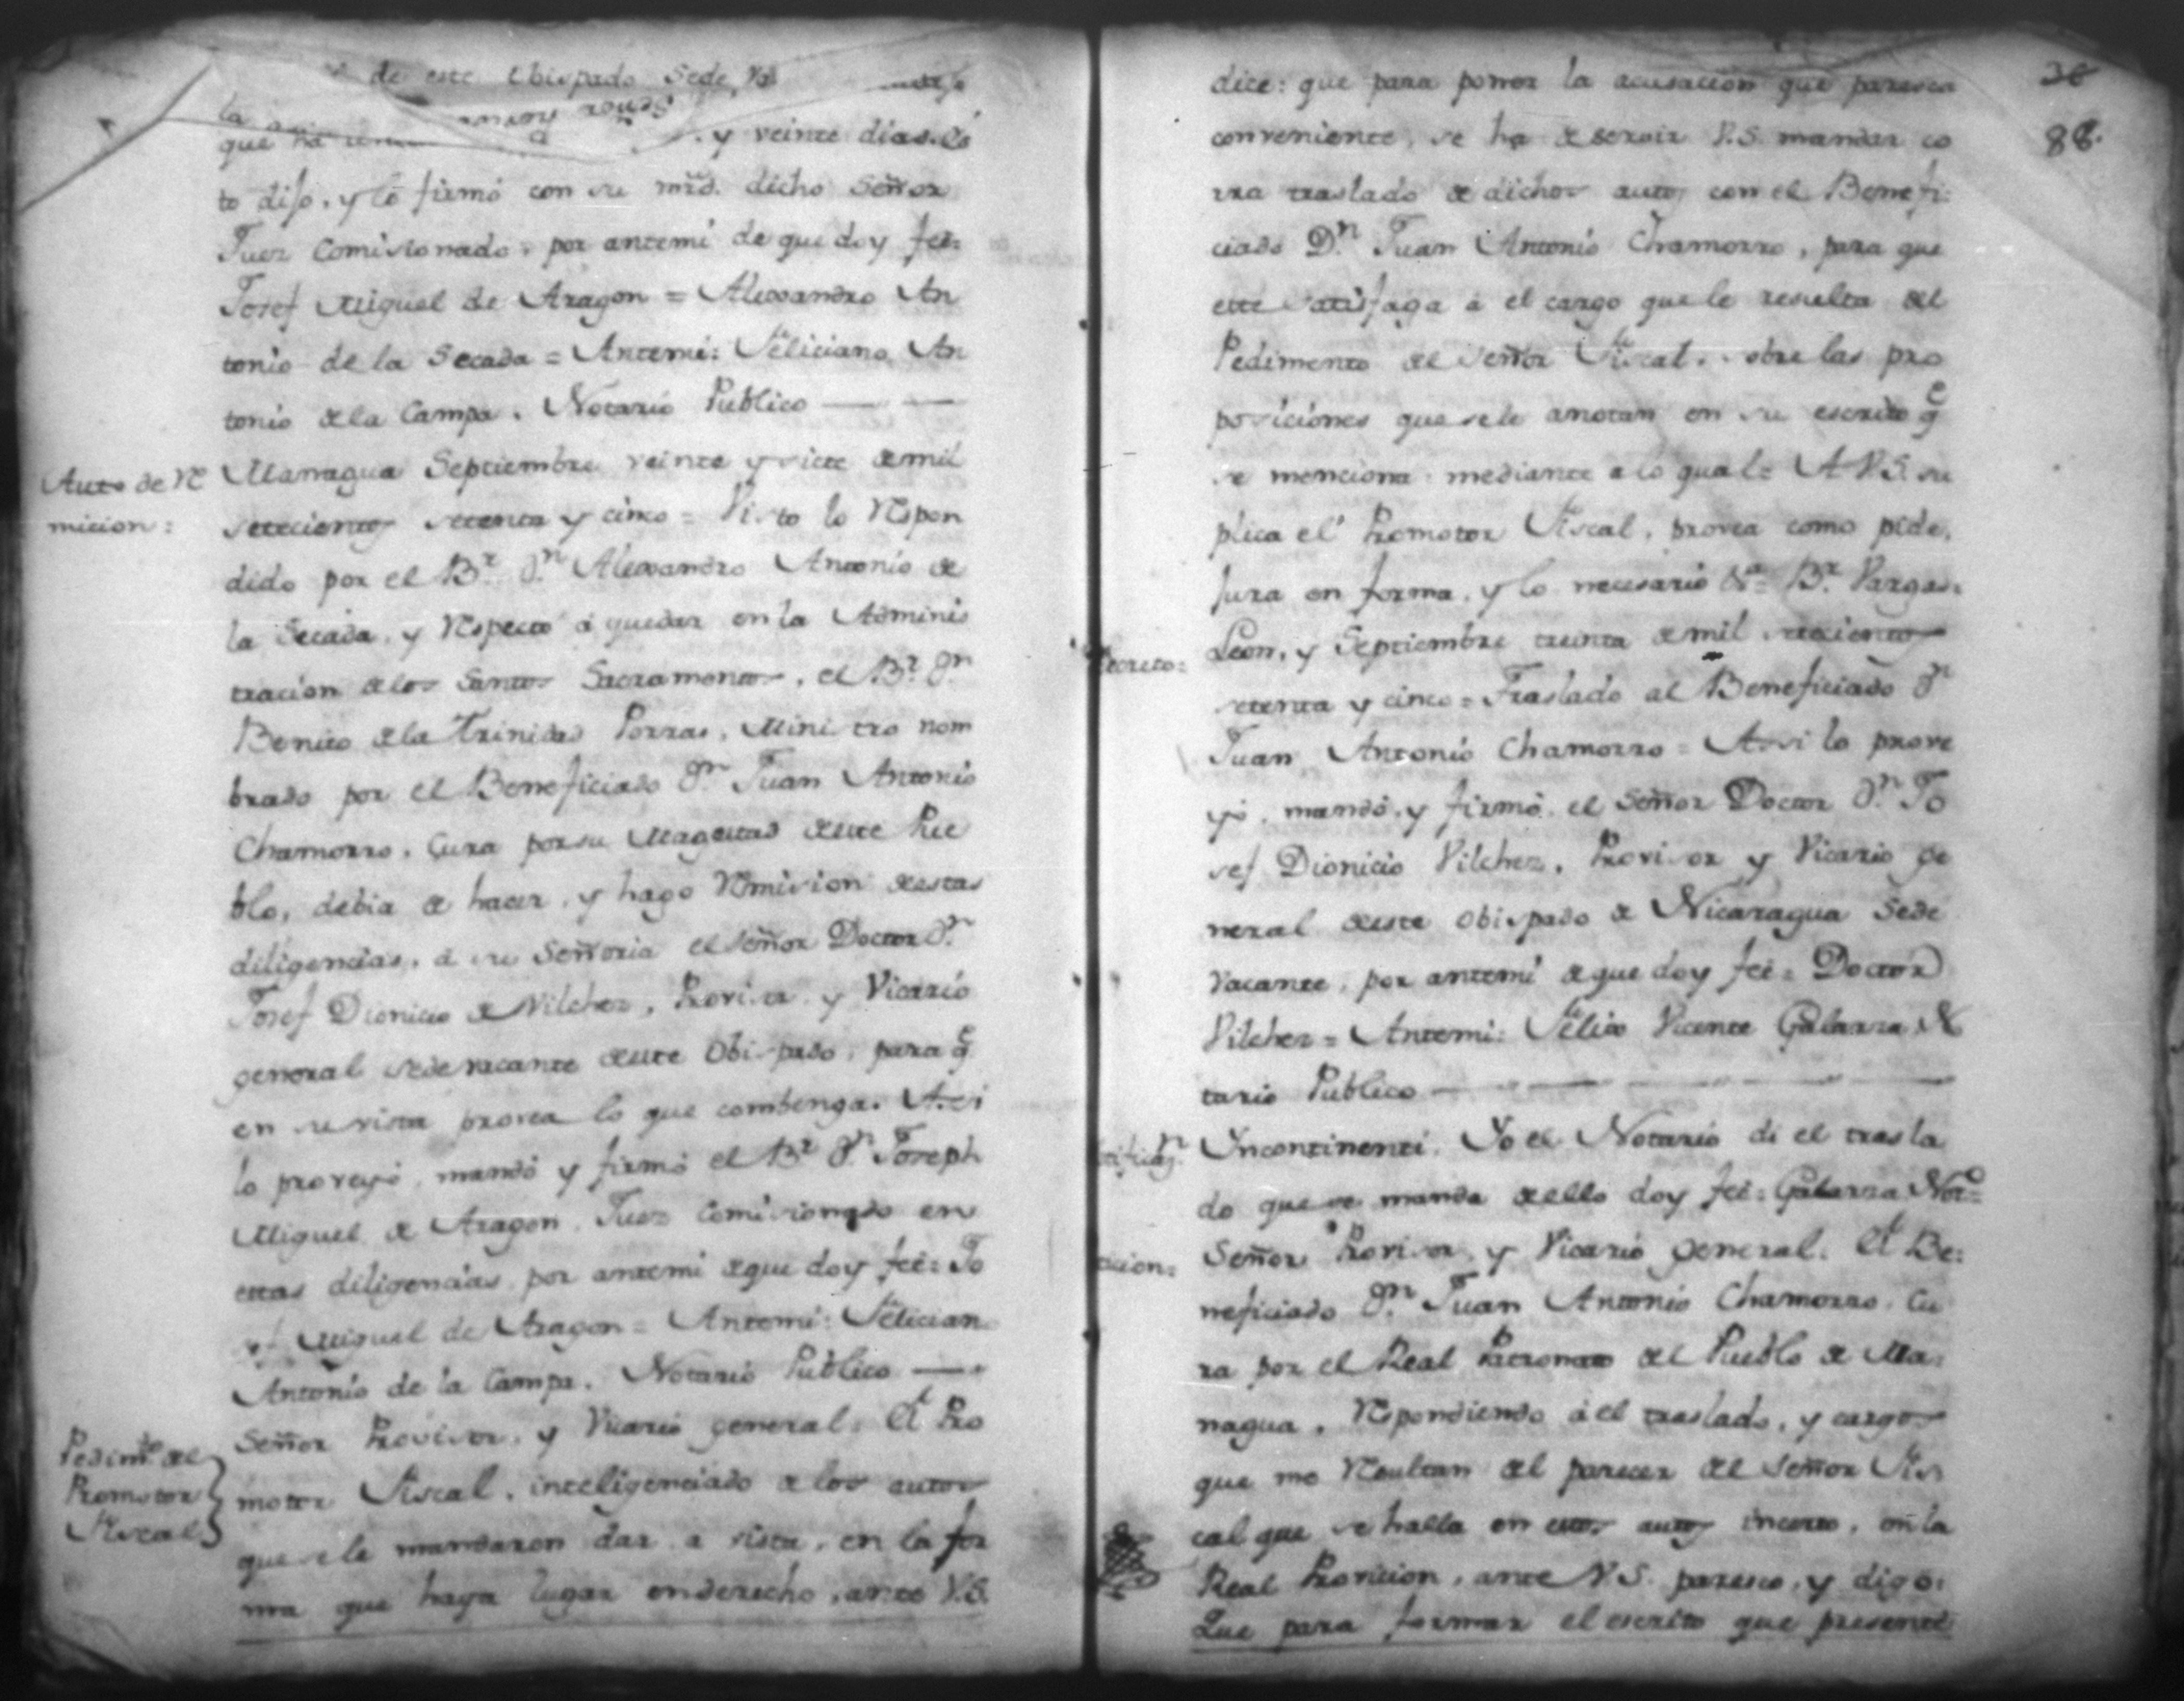 de este Obispado Sede Va
la
que ha y veinte dias. Es
to dijo, y lo firmó con su mrd. dicho Señor
Juez Comisionado, por antemi de que doy feé=
Josef Miguel de Aragon = Alexandro An
tonio de la Secada = Antemi: Feliciano An
tonio de la Campa. Notario Publico
Auto de Re
micion:
Managua Septiembre veinte y siete de mil
setecientos setenta y cinco = Visto lo Respon
dido por el Br. Dn. Alexandro Antonio de
la Secada, y Respecto á quedar en la Adminis
tracion de los Santos Sacramentos, el Br. Dn.
Benito de la Trinidad Porras, Ministro nom
brado por el Beneficiado Dn. Juan Antonio
Chamorro, Cura por su Magestad de este Pue
blo, debia de hacer, y hago Remision de estas
diligencias, á su Señoria el Señor Doctor Dn.
Josef Dionicio de Vilchez, Provisor, y Vicario
general sede vacante de este Obispado, para q.e
en su vista provea lo que combenga. Assi
lo proveyó, mandó y firmó el Br. Dn. Joseph
Miguel de Aragon Juez Comisionado en
estas diligencias, por antemi de que doy feé= Jo
sef Miguel de Aragon = Antemi: Feliciano
Antonio de la Campa. Notario Publico
Pedim.to del
Promotor
Fiscal
Señor Provisor, y Vicario general. El Pro
motor Fiscal, inteligenciado de los autos
que se le mandaron dar a vista, en la for
ma que haya lugar en derecho, ante V.S.
88.
dice: que para poner la acusacion que paresca
conveniente, se ha de servir V.S. mandar co
rra traslado de dichos autos con el Benefi=
ciado Dn. Juan Antonio Chamorro, para que
este satisfaga á el cargo que le resulta del
Pedimento del Señor Fiscal, sobre las pro
posiciones que se le anotan en su escrito q.e
se menciona mediante a lo qual= A V.S. su
plica el Promotor Fiscal, provea como pide,
Jura en forma, y lo necesario &a= Br. Vargas=
ecreto=
Leon, y Septiembre treinta de mil setecientos
setenta y cinco = Traslado al Beneficiado Dn
Juan Antonio Chamorro = Assi lo prove
yó, mandó, y firmó el Señor Doctor Dn. Jo
sef Dionicio Vilchez, Provisor y Vicario ge
neral de este Obispado de Nicaragua Sede
Vacante, por antemi de que doy feé= Doctor
Vilchez = Antemi: Felix Vicente Galarza No
tario Publico
tificaz.n
Yncontinenti. Yo el Notario di el trasla
do que se manda de ello doy feé= Galarza Not.o=
icion=
Señor Provisor, y Vicario general. El Be=
neficiado Dn. Juan Antonio Chamorro, Cu
ra por el Real Patronato del Pueblo de Ma=
nagua, Respondiendo á el traslado, y cargos
que me Resultan del parecer del Señor Fis
cal que se halla en estos autos incerto, en la
Real Provicion, ante V.S. paresco, y digo:
Que para formar el escrito que presenté